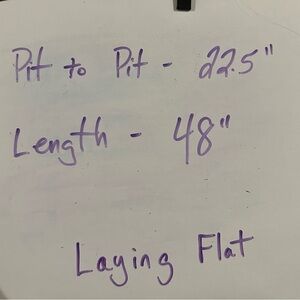 Pit to Pit - 22.5"
Length - 48"
Laying Flat